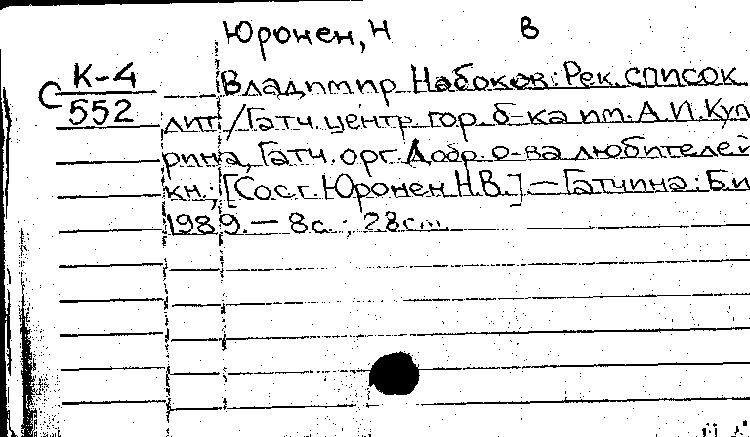 Юронен, Н В
К-4 Владимир Набоков: Рек. список
С 552 лит. / Гатч. центр. гор. б-ка им. А.И. Куп
рина, Гатч. орг. Добр. о-ва любителей
кн.; [Сост. Юронен Н.В.]. — Гатчина: Б.и
1989. — 8с.; 28см.